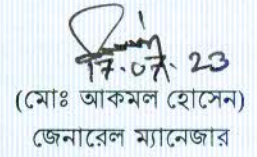 17.07.23
(মোঃ আকমল হোসেন)
জেনারেল ম্যানেজার